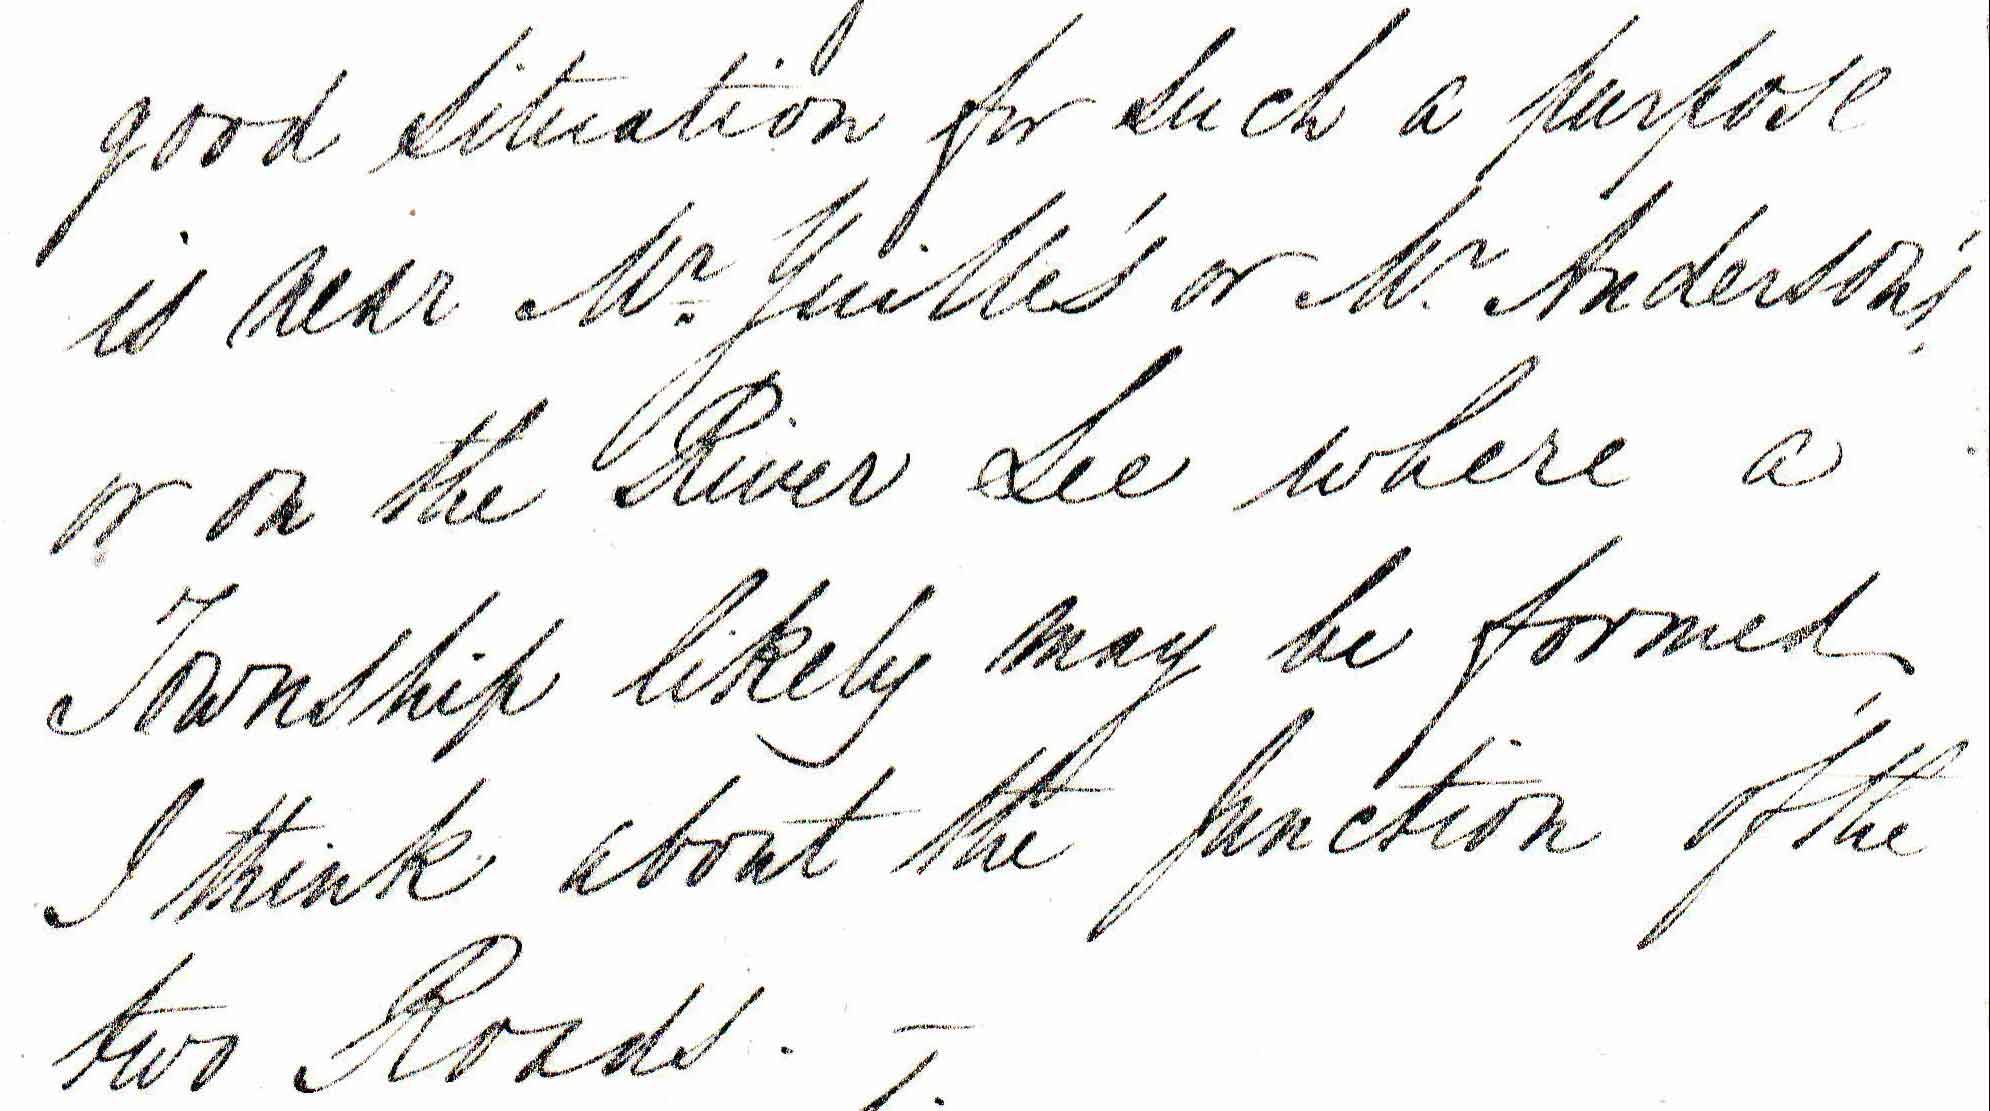 good situation for such a purpose
is near Mr. Yuille's or Mr. Anderson's
or on the River Lee where a
Township likely may be formed
I think about the junction of the
two Roads.